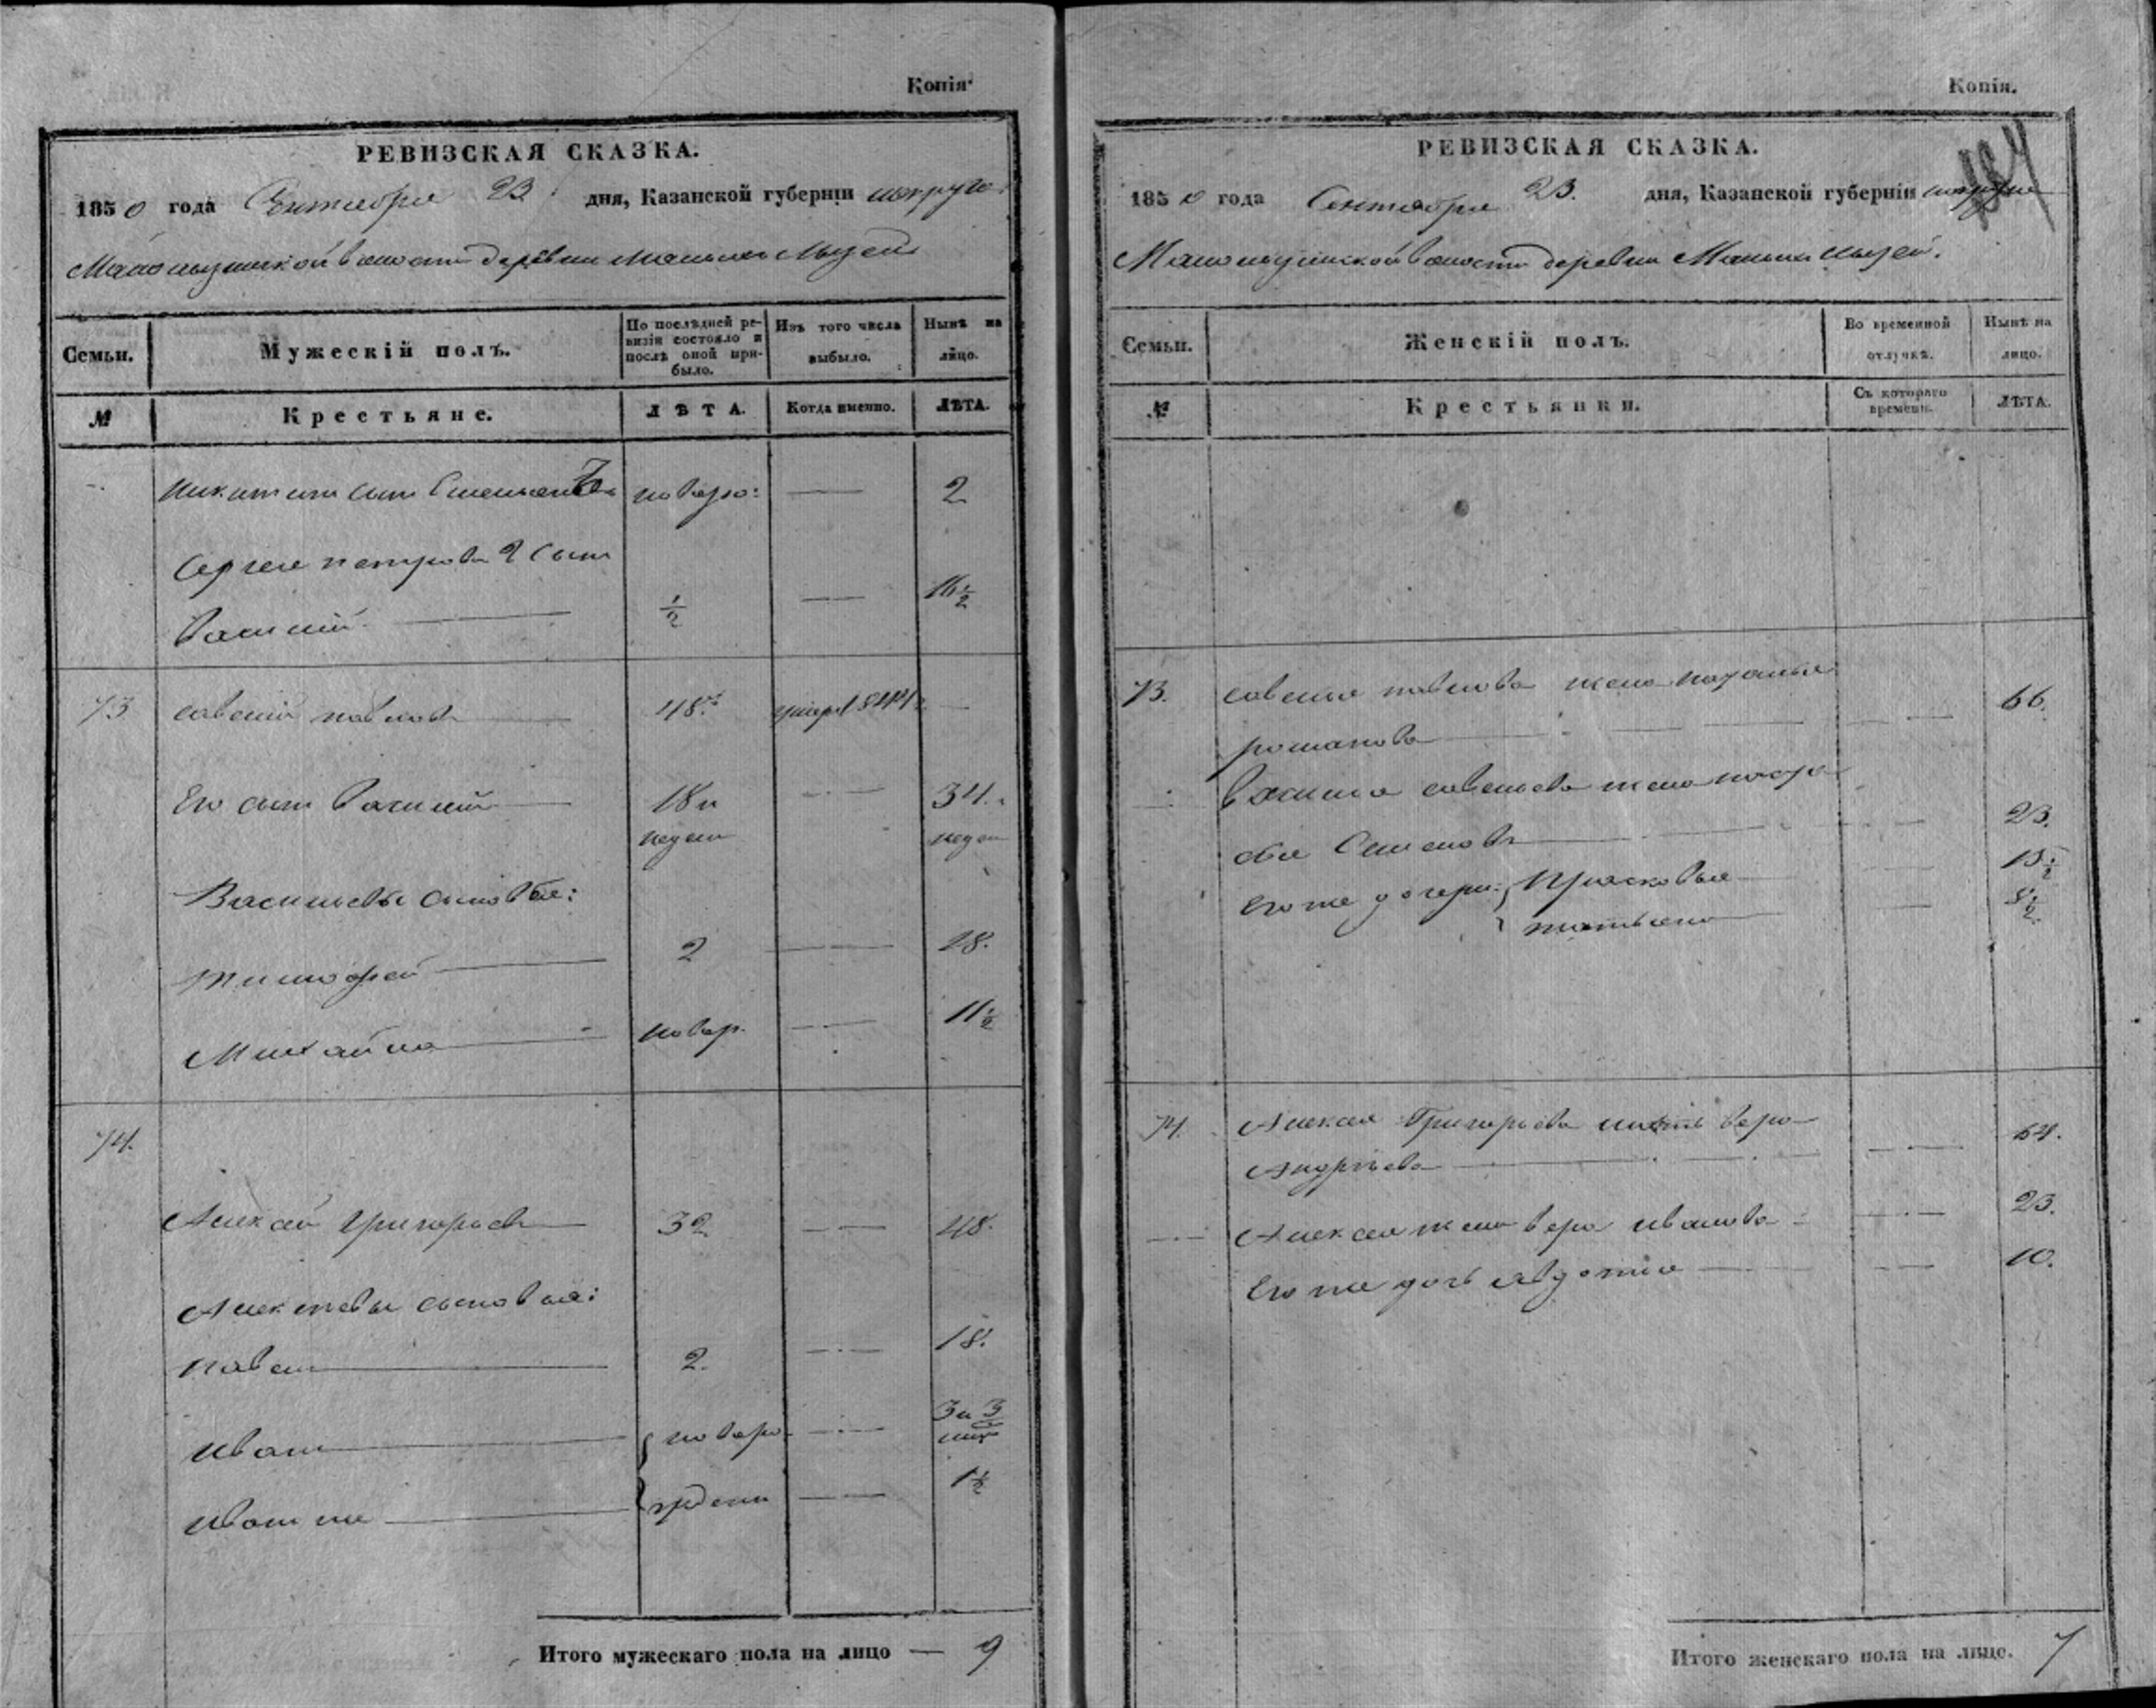 Копія.
РЕВИЗСКАЯ СКАЗКА.
1850 года Сентября 23 дня, Казанской губерніи
волости деревни
Семьи.
Мужескій полъ.
По послѣдней ревизіи состояло и послѣ оной прибыло.
Изъ того числа выбыло.
Нынѣ на лицо.
№
Крестьяне.
ЛѢТА.
Когда именно.
ЛѢТА.
Никитин сын новоро: — 2
Сергея Петрова 2 сын
Василий — 1/2 — 16 1/2
73 Савелий Павлов — 48 умер 1844 —
Его сын Василий — 18 и недели — 34. недел
Васильевы сыновья:
Тимофей — 2 — 18.
Михайла — новор. — 11 1/2
74.
Алексей Григорьев — 32 — 48.
Алексеевы сыновья:
Павел — 2. — 18.
Иван — новоро — 3 и 3
Иван же — ждены — 1 1/2
Итого мужескаго пола на лицо — 9
Копія.
РЕВИЗСКАЯ СКАЗКА.
1850 года Сентября 23. дня, Казанской губерніи
волости деревни
Семьи.
Женскій полъ.
Во временной отлучкѣ.
Нынѣ на лицо.
№
Крестьянки.
Съ котораго времени.
ЛѢТА.
73. Савелья Павлова жена
Романова — 66.
Василья Савельева жена
Семенова — 23.
Его же дочери: Прасковья — 15 1/2
Татьяна — 8 1/2
74. Алексея Григорьева мать Вера
Андреева — 64.
Алексея жена Вера Иванова — 23.
Его же дочь Авдотья — 10.
Итого женскаго пола на лицо. 7